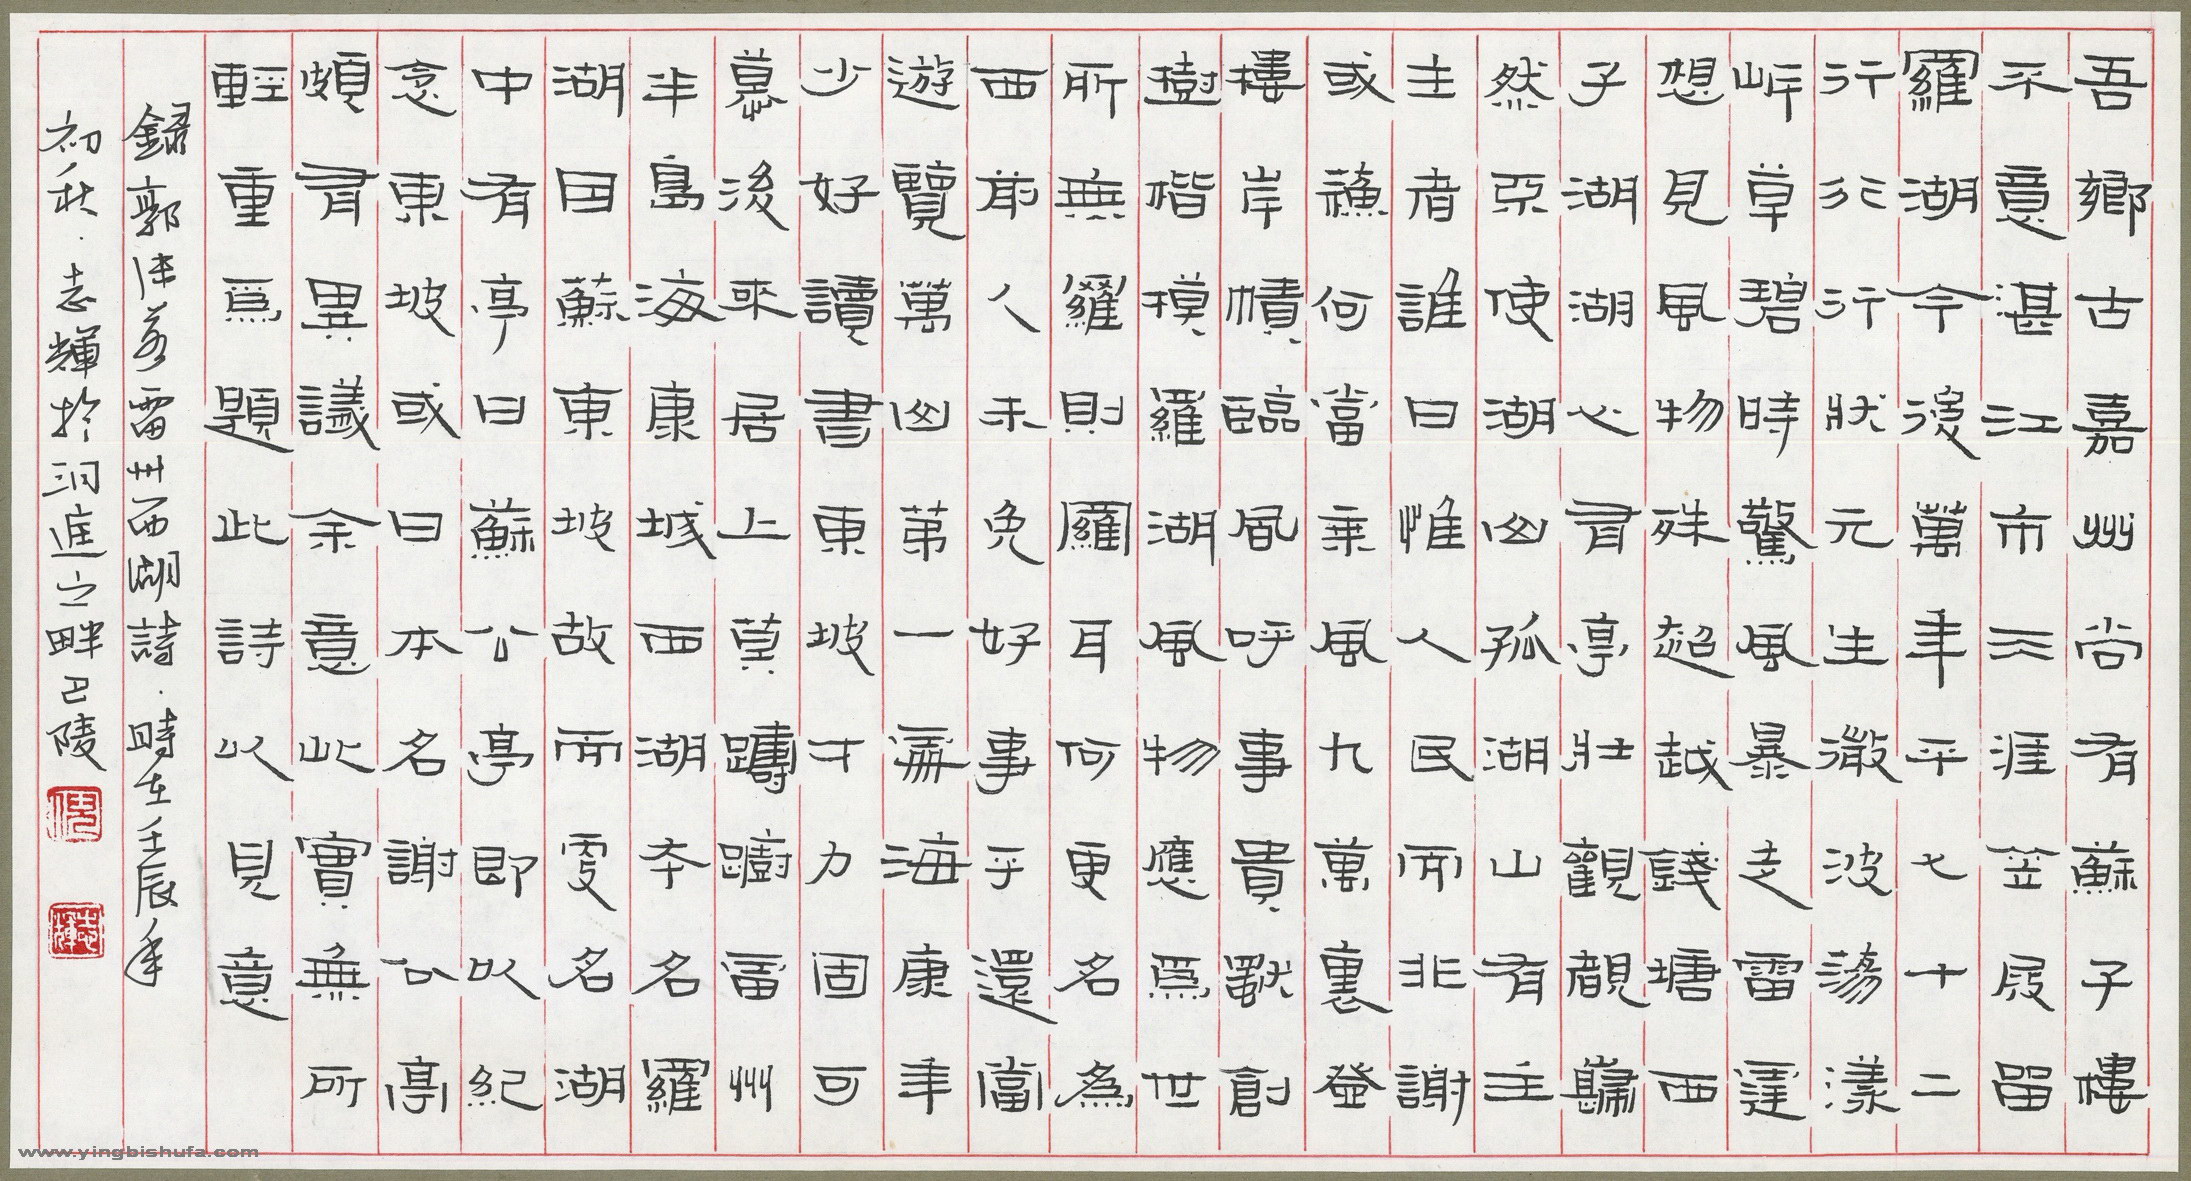 吾鄉古嘉州尚有蘇子樓
不意湛江市三涯笠屐留
羅湖今後萬年平七十二
行行行狀元生激波蕩漾
岸草碧時驚風暴走雷霆
想見風物殊超越錢塘西
子湖湖心有亭壯觀覩巋
然亞使湖山孤湖山有主
主者誰曰惟人民而非謝
或蘇何當乘風九萬裏登
樓岸幘臨風呼事貴獻創
樹楷模羅湖風物應爲世
所無羅則羅耳何更名為
西前人未免好事乎還當
遊覽萬山第一海康年
少好讀書東坡才力固可
慕後來居上莫躊躇雷州
半島海康城西湖本名羅
湖因蘇東坡故而更名湖
中有亭曰蘇公亭即以紀
念東坡或曰本名謝公亭
頗有異議余意此實無所
輕重爲題此詩以見意
錄郭沫若雷州西湖詩.時在壬辰年
初秋.志輝於洞庭之畔巴陵
周
志輝
www.yingbishufa.com